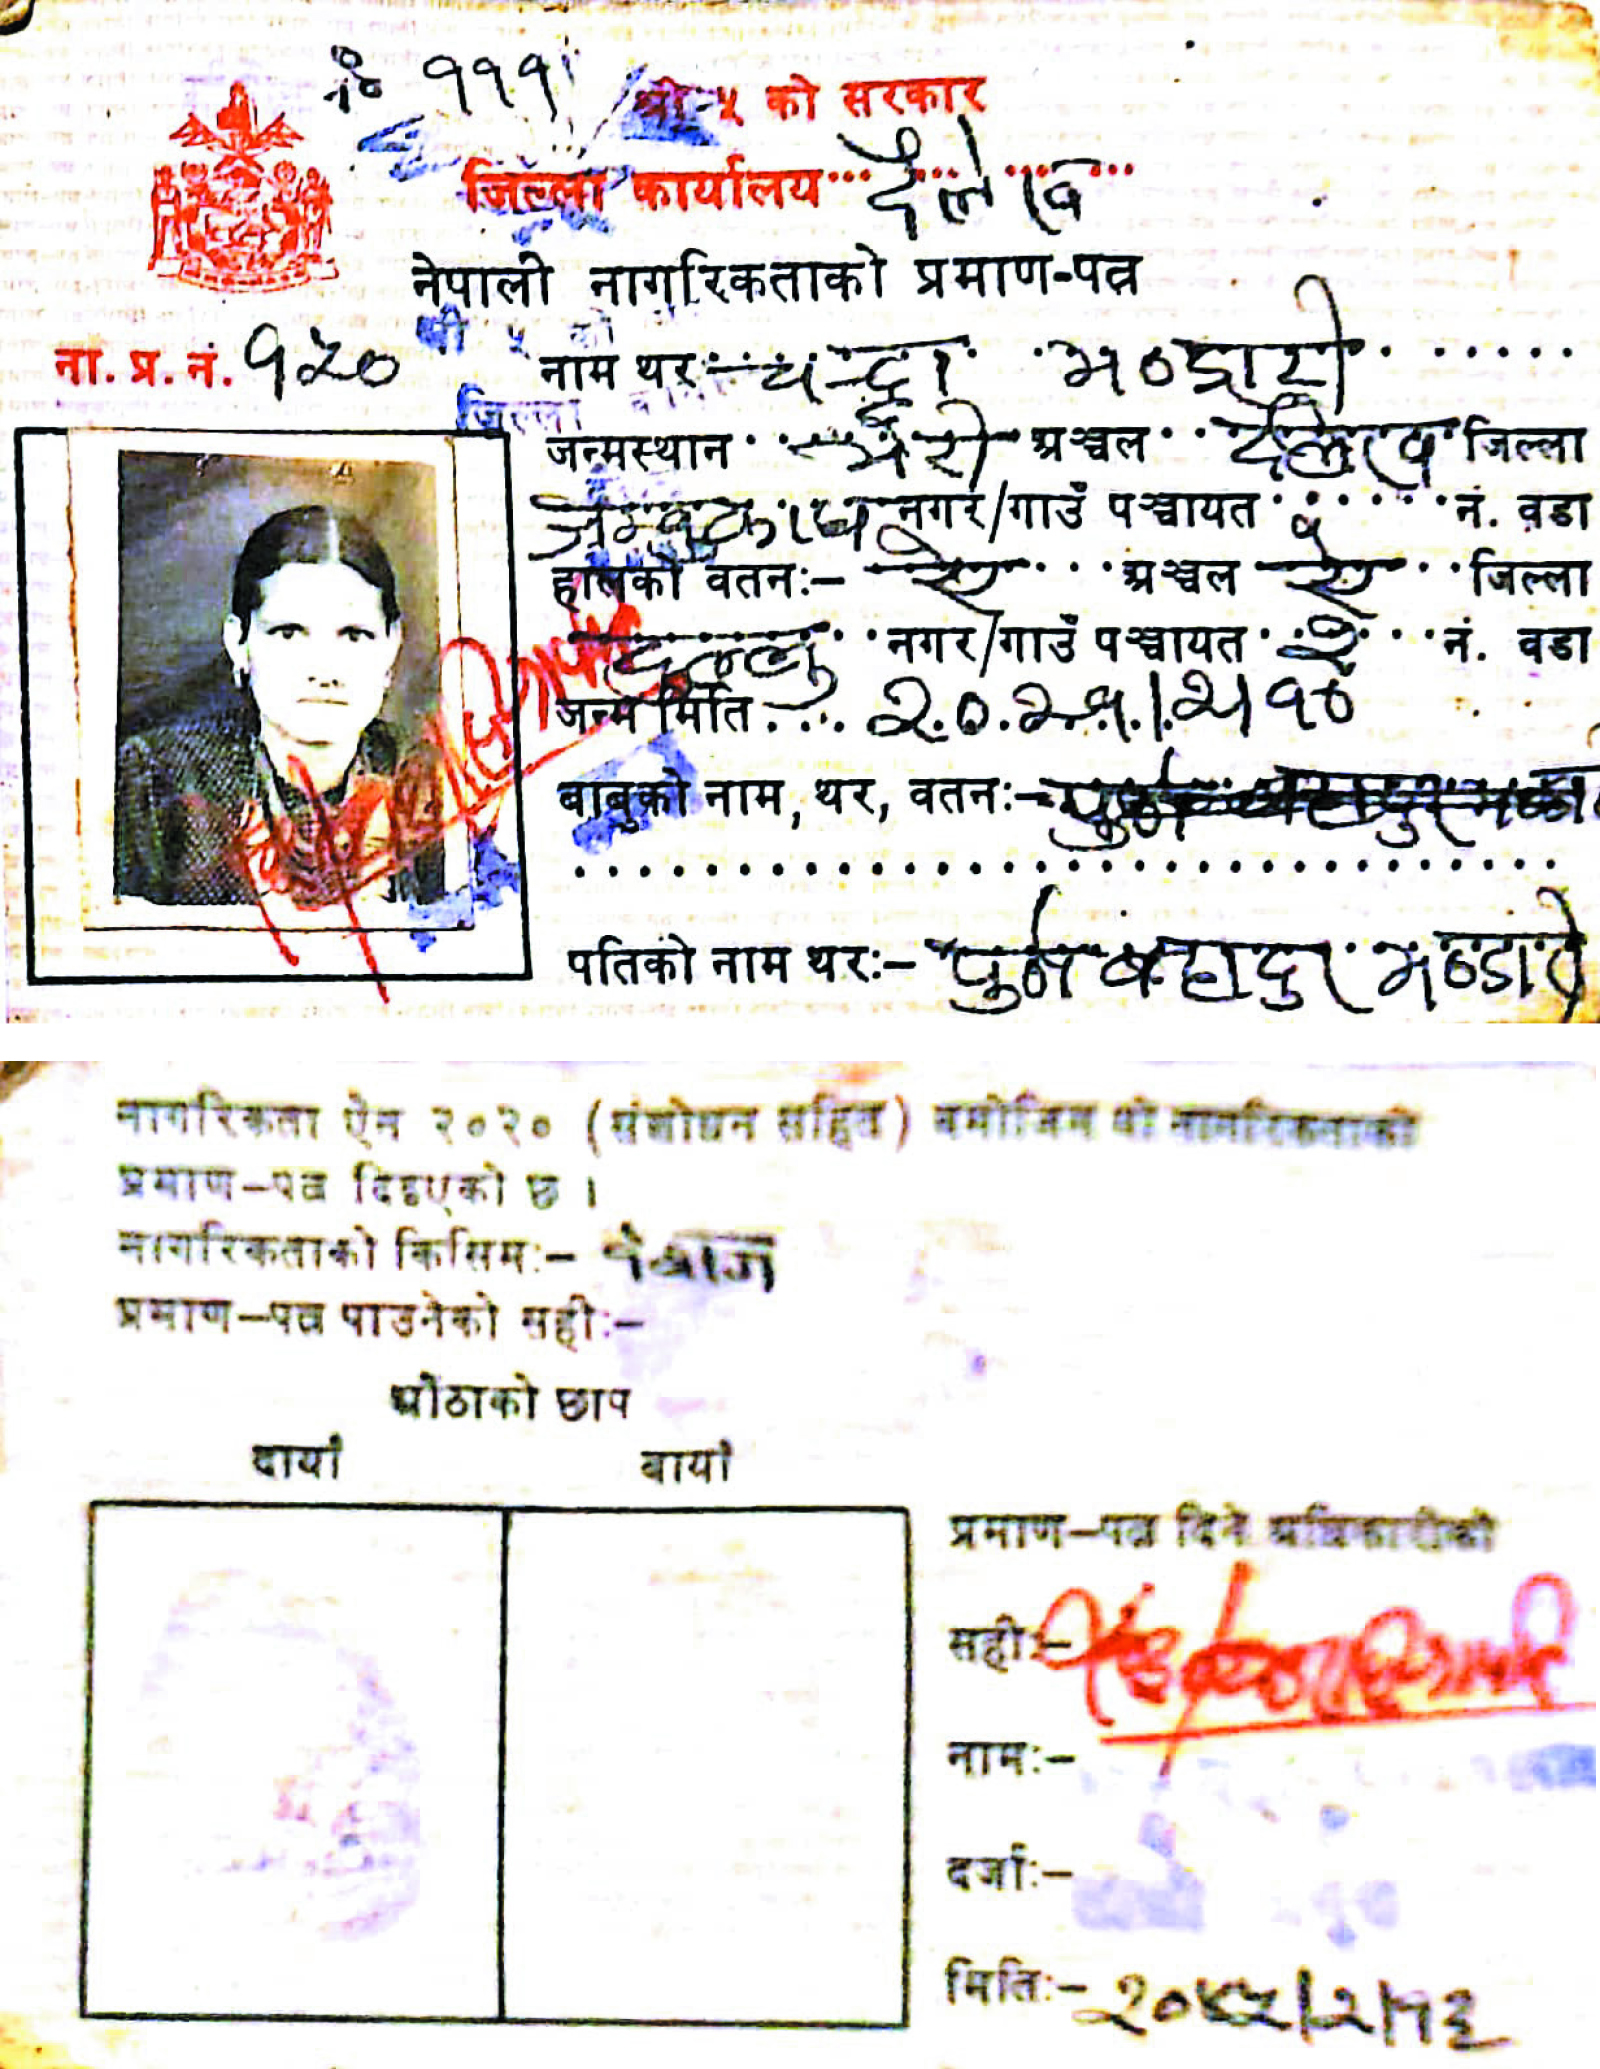 नं १११
श्री ५ को सरकार
जिल्ला कार्यालय दैलेख
नेपाली नागरिकताको प्रमाण-पत्र
श्री ५ को
जिल्ला
ना. प्र. नं. १५०
नाम थर:- चन्द्रा भण्डारी
जन्मस्थान भेरी अञ्चल दैलेख जिल्ला
नगर/गाउँ पञ्चायत नं. वडा
हालको वतन:- ऐ अञ्चल ऐ जिल्ला
दुल्लु नगर/गाउँ पञ्चायत नं. वडा
जन्म मिति
बाबुको नाम, थर, वतन:-
पतिको नाम थर:- पुर्ण बहादुर भण्डारी
नागरिकता ऐन २०२० (संशोधन सहित) बमोजिम यो नागरिकताको
प्रमाण-पत्र दिइएको छ ।
नागरिकताको किसिम:- वंशज
प्रमाण-पत्र पाउनेको सही:-
औंठाको छाप
दायाँ बायाँ
प्रमाण-पत्र दिने अधिकारीको
सही:-
नाम:-
दर्जा:-
मिति:-